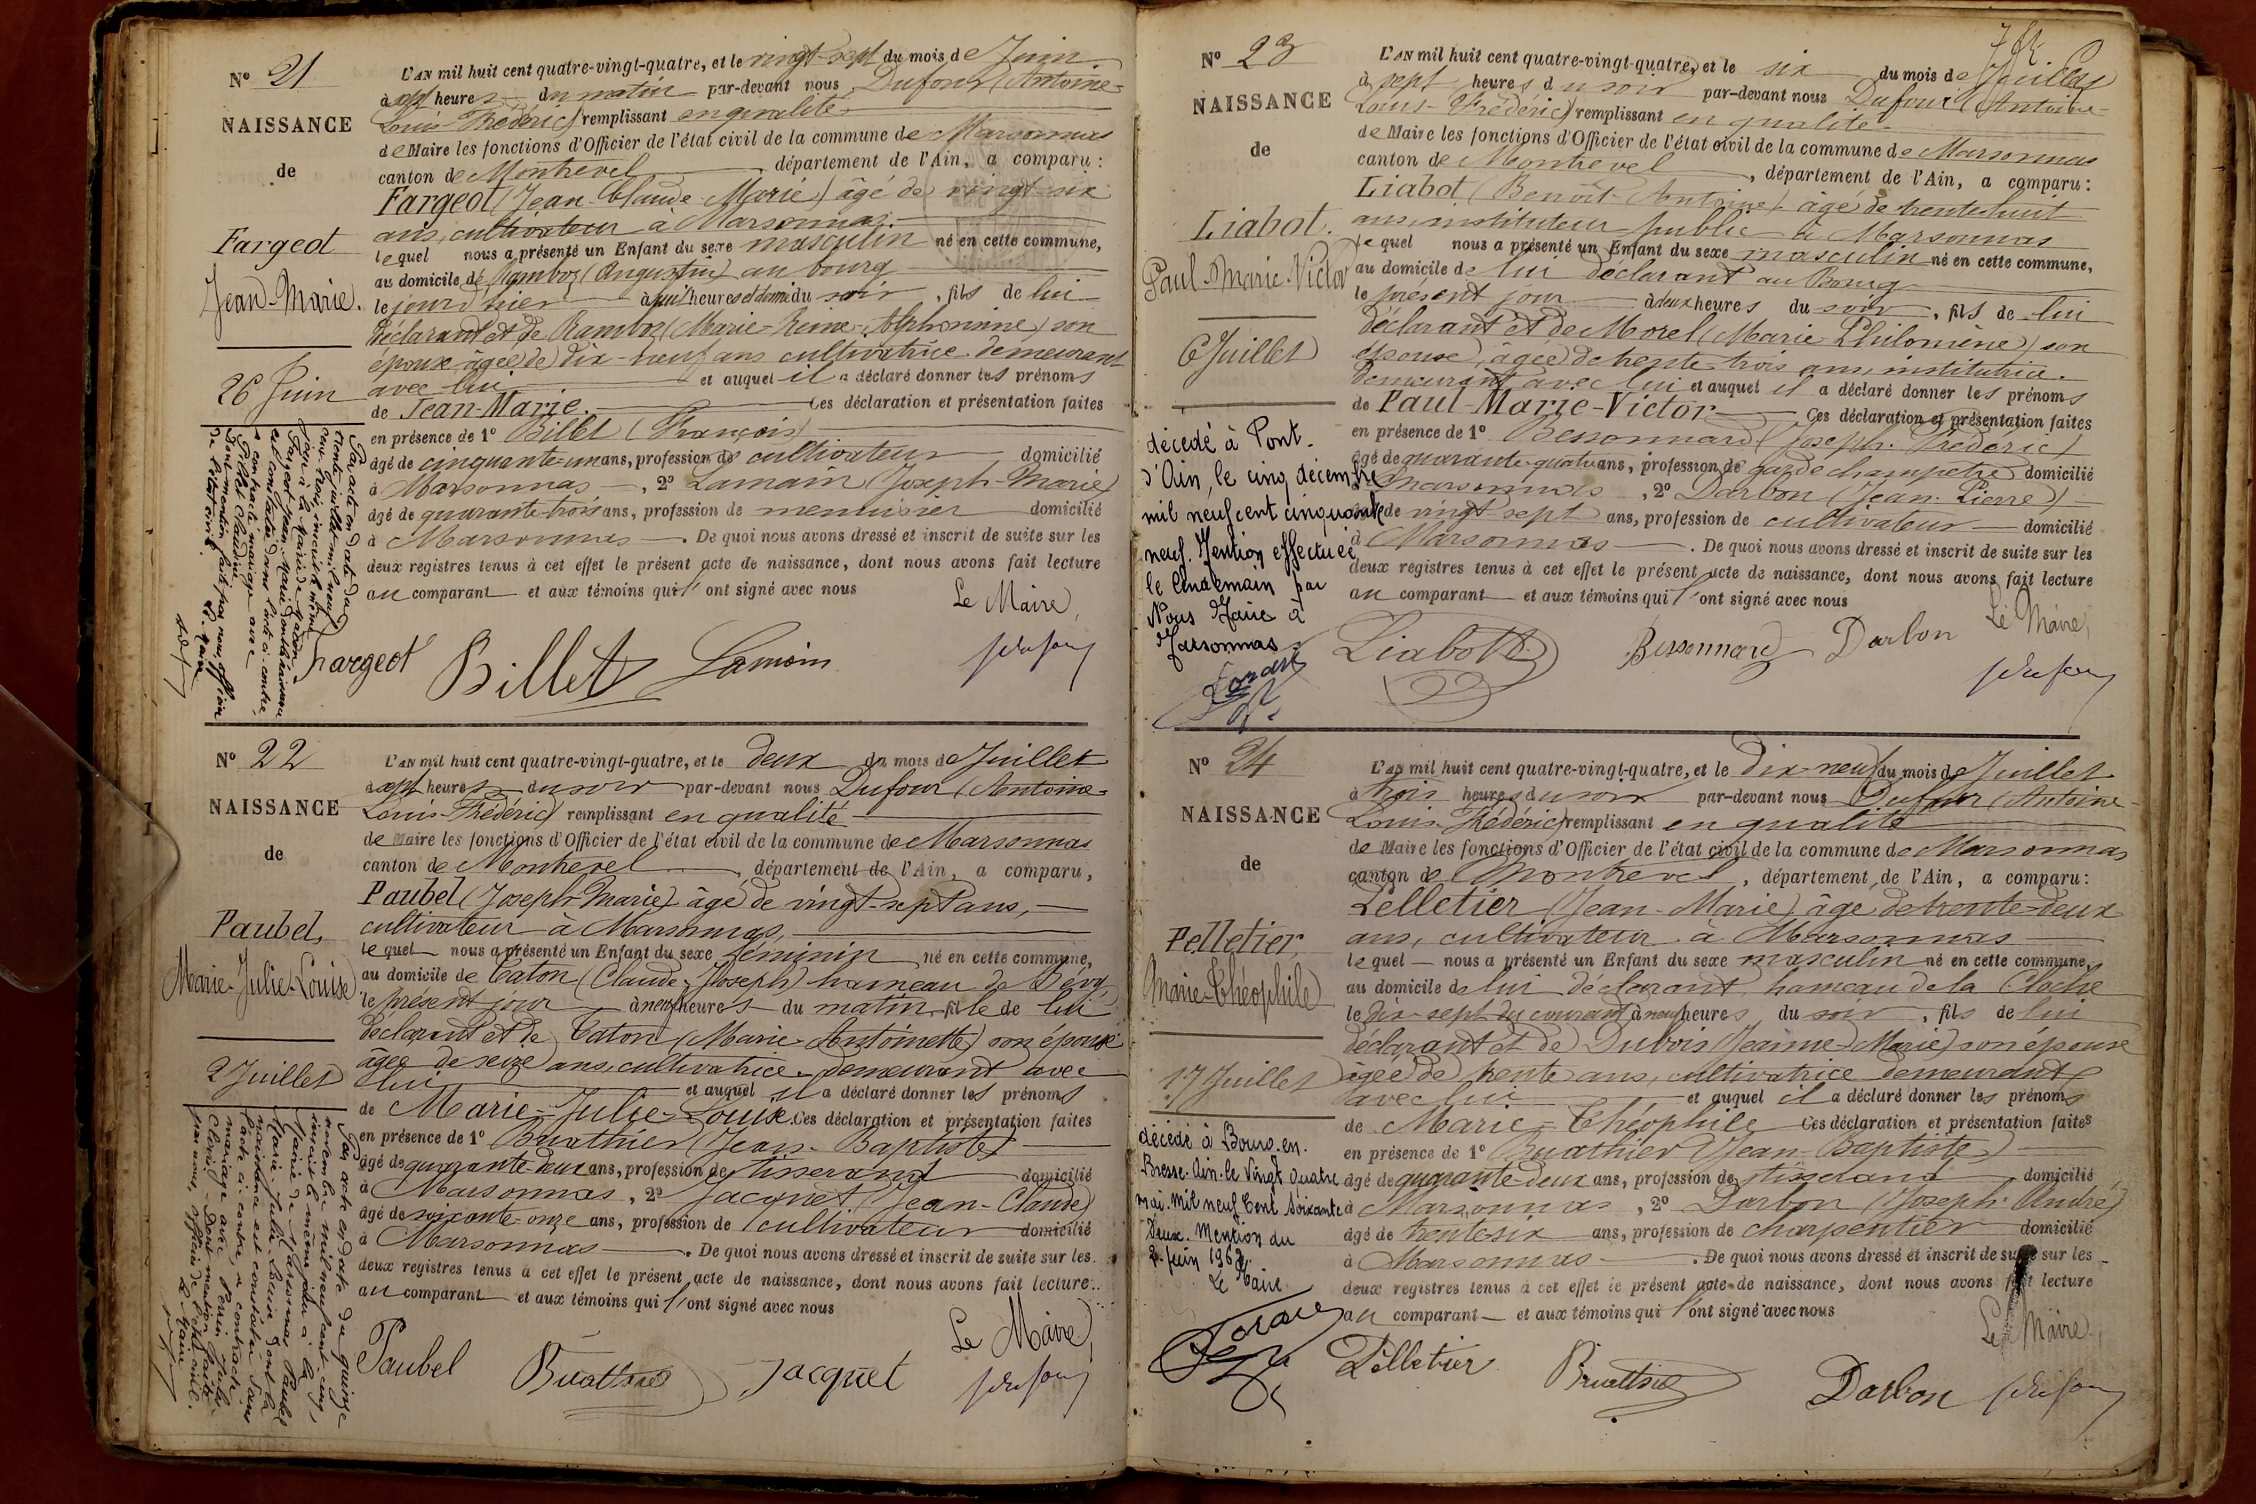 N° 21
NAISSANCE
de
Fargeot
Jean-Marie.
26 Juin
L'AN mil huit cent quatre-vingt-quatre, et le vingt-sept du mois de Juin
à sept heures du matin par-devant nous Dufour (Antoine-
Louis-Frédéric) remplissant en qualité
de Maire les fonctions d'Officier de l'état civil de la commune de Marsonnas
canton de Montrevel, département de l'Ain, a comparu :
Fargeot (Jean-Claude-Marie) âgé de vingt-six
ans, cultivateur à Marsonnas,
lequel nous a présenté un Enfant du sexe masculin né en cette commune,
au domicile de Ramboz (Augustin) au bourg
le jour d'hier à huit heures et demi du soir, fils de lui
déclarant et de Ramboz (Marie-Reine-Alphonsine) son
épouse âgée de dix-neuf ans cultivatrice demeurant
avec lui et auquel il a déclaré donner les prénoms
de Jean-Marie. Ces déclaration et présentation faites
en présence de 1° Billet (François)
âgé de cinquante-un ans, profession de cultivateur domicilié
à Marsonnas, 2° Lamain (Joseph-Marie)
âgé de quarante-trois ans, profession de menuisier domicilié
à Marsonnas. De quoi nous avons dressé et inscrit de suite sur les
deux registres tenus à cet effet le présent acte de naissance, dont nous avons fait lecture
au comparant et aux témoins qui l'ont signé avec nous
Le Maire,
Fargeot Billet Lamain
Par acte en date du
trente juillet mil neuf
cent trois, inscrit le même
jour à la Mairie de
Fargeot Jean Marie dont la naissance
est constatée dans l'acte ci-contre,
a contracté mariage avec
Claudine
Dont mention faite par nous, officier
de l'état civil. Le Maire
N° 22
NAISSANCE
de
Paubel,
Marie-Julie-Louise
2 Juillet
L'AN mil huit cent quatre-vingt-quatre, et le deux du mois de Juillet
à sept heures du soir par-devant nous Dufour (Antoine-
Louis-Frédéric) remplissant en qualité
de Maire les fonctions d'Officier de l'état civil de la commune de Marsonnas
canton de Montrevel, département de l'Ain, a comparu,
Paubel (Joseph-Marie) âgé de vingt-sept ans,
cultivateur à Marsonnas,
lequel nous a présenté un Enfant du sexe féminin né en cette commune,
au domicile de Caton (Claude-Joseph) hameau de
le présent jour à neuf heures du matin, fille de lui
déclarant et de Caton (Marie-Antoinette) son épouse
âgée de seize ans, cultivatrice demeurant avec
lui et auquel il a déclaré donner les prénoms
de Marie-Julie-Louise. Ces déclaration et présentation faites
en présence de 1° Buathier (Jean-Baptiste)
âgé de quarante-deux ans, profession de tisserand domicilié
à Marsonnas, 2° Jacquet (Jean-Claude)
âgé de soixante-onze ans, profession de cultivateur domicilié
à Marsonnas. De quoi nous avons dressé et inscrit de suite sur les
deux registres tenus à cet effet le présent acte de naissance, dont nous avons fait lecture
au comparant et aux témoins qui l'ont signé avec nous
Le Maire,
Paubel Buathier Jacquet
Par acte en date du quinze
novembre mil neuf cent cinq,
inscrit le même jour à la
Mairie de Marsonnas, Paubel
Marie-Julie-Louise dont la
naissance est constatée dans
l'acte ci-contre, a contracté
mariage avec Perrin Jules
Dont mention faite
par nous, officier de l'état civil.
Le Maire
N° 23
NAISSANCE
de
Liabot.
Paul-Marie-Victor
6 Juillet
L'AN mil huit cent quatre-vingt-quatre, et le six du mois de Juillet
à sept heures du soir par-devant nous Dufour (Antoine-
Louis-Frédéric) remplissant en qualité
de Maire les fonctions d'Officier de l'état civil de la commune de Marsonnas
canton de Montrevel, département de l'Ain, a comparu :
Liabot (Benoît-Antoine) âgé de trente-huit
ans, instituteur public à Marsonnas
lequel nous a présenté un Enfant du sexe masculin né en cette commune,
au domicile de lui déclarant au Bourg
le présent jour à deux heures du soir, fils de lui
déclarant et de Morel (Marie Philomène) son
épouse, âgée de trente-trois ans, institutrice
demeurant avec lui et auquel il a déclaré donner les prénoms
de Paul-Marie-Victor Ces déclaration et présentation faites
en présence de 1° Bessonnard (Joseph-Frédéric)
âgé de quarante-quatre ans, profession de garde champêtre domicilié
à Marsonnas, 2° Darbon (Jean-Pierre)
âgé de vingt-sept ans, profession de cultivateur domicilié
à Marsonnas. De quoi nous avons dressé et inscrit de suite sur les
deux registres tenus à cet effet le présent acte de naissance, dont nous avons fait lecture
au comparant et aux témoins qui l'ont signé avec nous
Le Maire,
Liabot Bessonnard Darbon
décédé à Pont-
d'Ain, le cinq décembre
mil neuf cent cinquante
neuf. Mention effectuée
le lendemain par
Nous Maire à
Marsonnas
N° 24
NAISSANCE
de
Pelletier,
Marie-Théophile
17 Juillet
L'AN mil huit cent quatre-vingt-quatre, et le Dix-neuf du mois de Juillet
à trois heures du soir par-devant nous Dufour (Antoine-
Louis-Frédéric) remplissant en qualité
de Maire les fonctions d'Officier de l'état civil de la commune de Marsonnas
canton de Montrevel, département de l'Ain, a comparu :
Pelletier (Jean-Marie) âgé de trente-deux
ans, cultivateur à Marsonnas
lequel nous a présenté un Enfant du sexe masculin né en cette commune,
au domicile de lui déclarant hameau de la Cloche
le dix-sept du courant à neuf heures du soir, fils de lui
déclarant et de Dubois (Jeanne-Marie) son épouse
âgée de trente ans, cultivatrice demeurant
avec lui et auquel il a déclaré donner les prénoms
de Marie-Théophile Ces déclaration et présentation faites
en présence de 1° Buathier (Jean-Baptiste)
âgé de quarante-deux ans, profession de tisserand domicilié
à Marsonnas, 2° Darbon (Joseph-André)
âgé de trente-six ans, profession de charpentier domicilié
à Marsonnas. De quoi nous avons dressé et inscrit de suite sur les
deux registres tenus à cet effet le présent acte de naissance, dont nous avons fait lecture
au comparant et aux témoins qui l'ont signé avec nous
Le Maire
Pelletier Buathier Darbon
décédé à Bourg-en-
Bresse-Ain-le Vingt quatre
mai-mil neuf Cent Soixante
Deux. Mention du
2 Juin 1962.
Le Maire